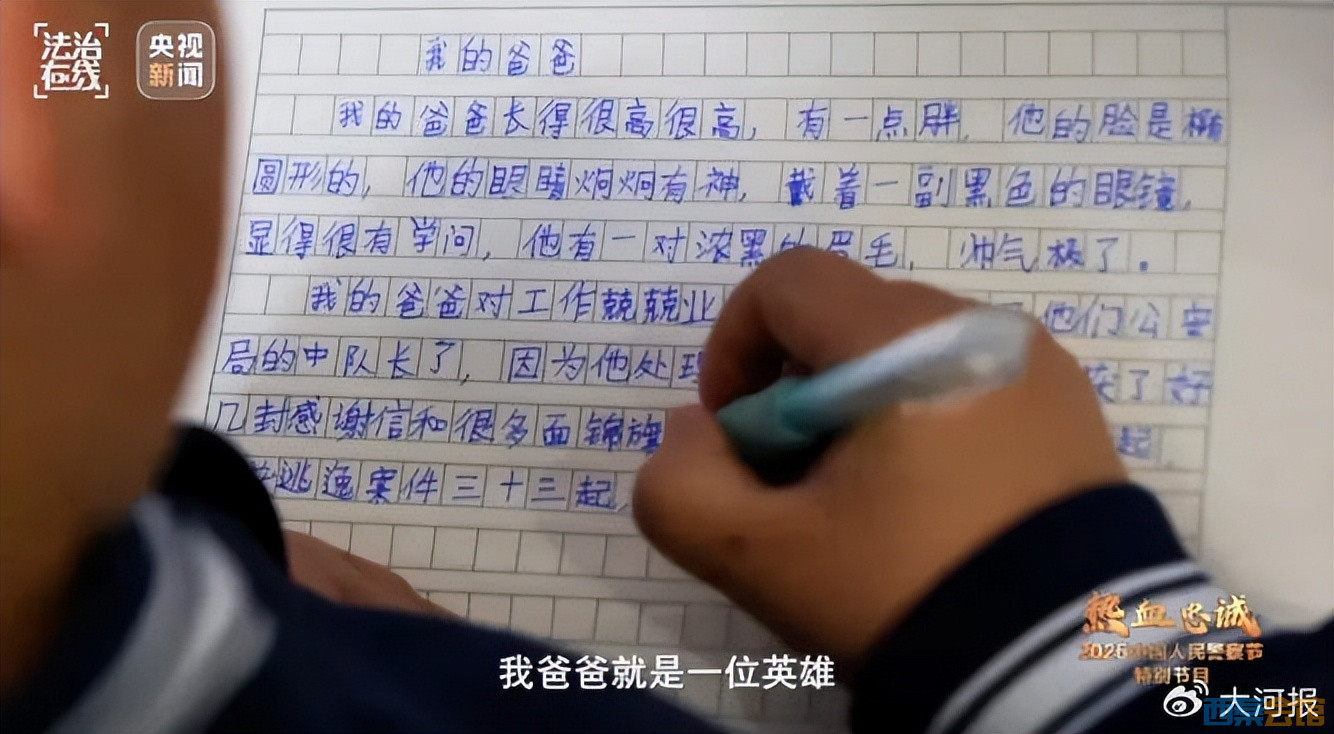 法治在线
央视新闻
我的爸爸
我的爸爸长得很高很高，有一点胖，他的脸是椭
圆形的，他的眼睛炯炯有神，戴着一副黑色的眼镜，
显得很有学问，他有一对浓黑的眉毛，帅气极了。
我的爸爸对工作兢兢业 他们公安
局的中队长了，因为他处理 获了好
几封感谢信和很多面锦旗 起，
逃逸案件三十三起，
我爸爸就是一位英雄
热血忠诚
2026中国人民警察节
特别节目
大河报